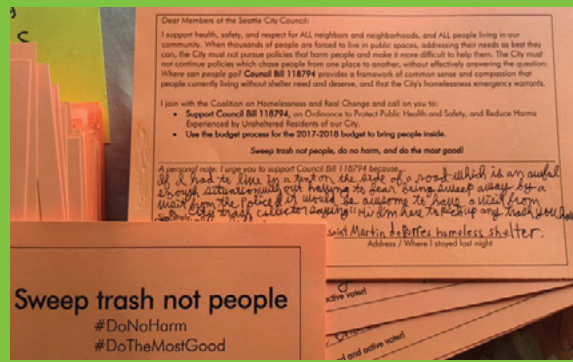 C
Dear Members of the Seattle City Council:
I support health, safety, and respect for ALL neighbors and neighborhoods, and ALL people living in our
community. When thousands of people are forced to live in public spaces, addressing their needs as best they
can, the City must not pursue policies that harm people and make it more difficult to help them. The City must
not continue policies which chase people from one place to another, without effectively answering the question:
Where can people go? Council Bill 118794 provides a framework of common sense and compassion that
people currently living without shelter need and deserve, and that the City's homelessness emergency warrants.
I join with the Coalition on Homelessness and Real Change and call on you to:
• Support Council Bill 118794, an Ordinance to Protect Public Health and Safety, and Reduce Harms
Experienced by Unsheltered Residents of our City.
• Use the budget process for the 2017-2018 budget to bring people inside.
Sweep trash not people, do no harm, and do the most good!
A personal note: I urge you to support Council Bill 118794 because
If I had to live in a tent on the side of a road which is an awful
enough situation without having to fear being sweep away by a
visit from the Police it would be awesome to have a visit from
a City trash collector saying "Hi I'm here to pick up any trash you have
saint Martin deporres homeless shelter.
Address / Where I stayed last night
active voter!
and active voter!
Sweep trash not people
#DoNoHarm
#DoTheMostGood